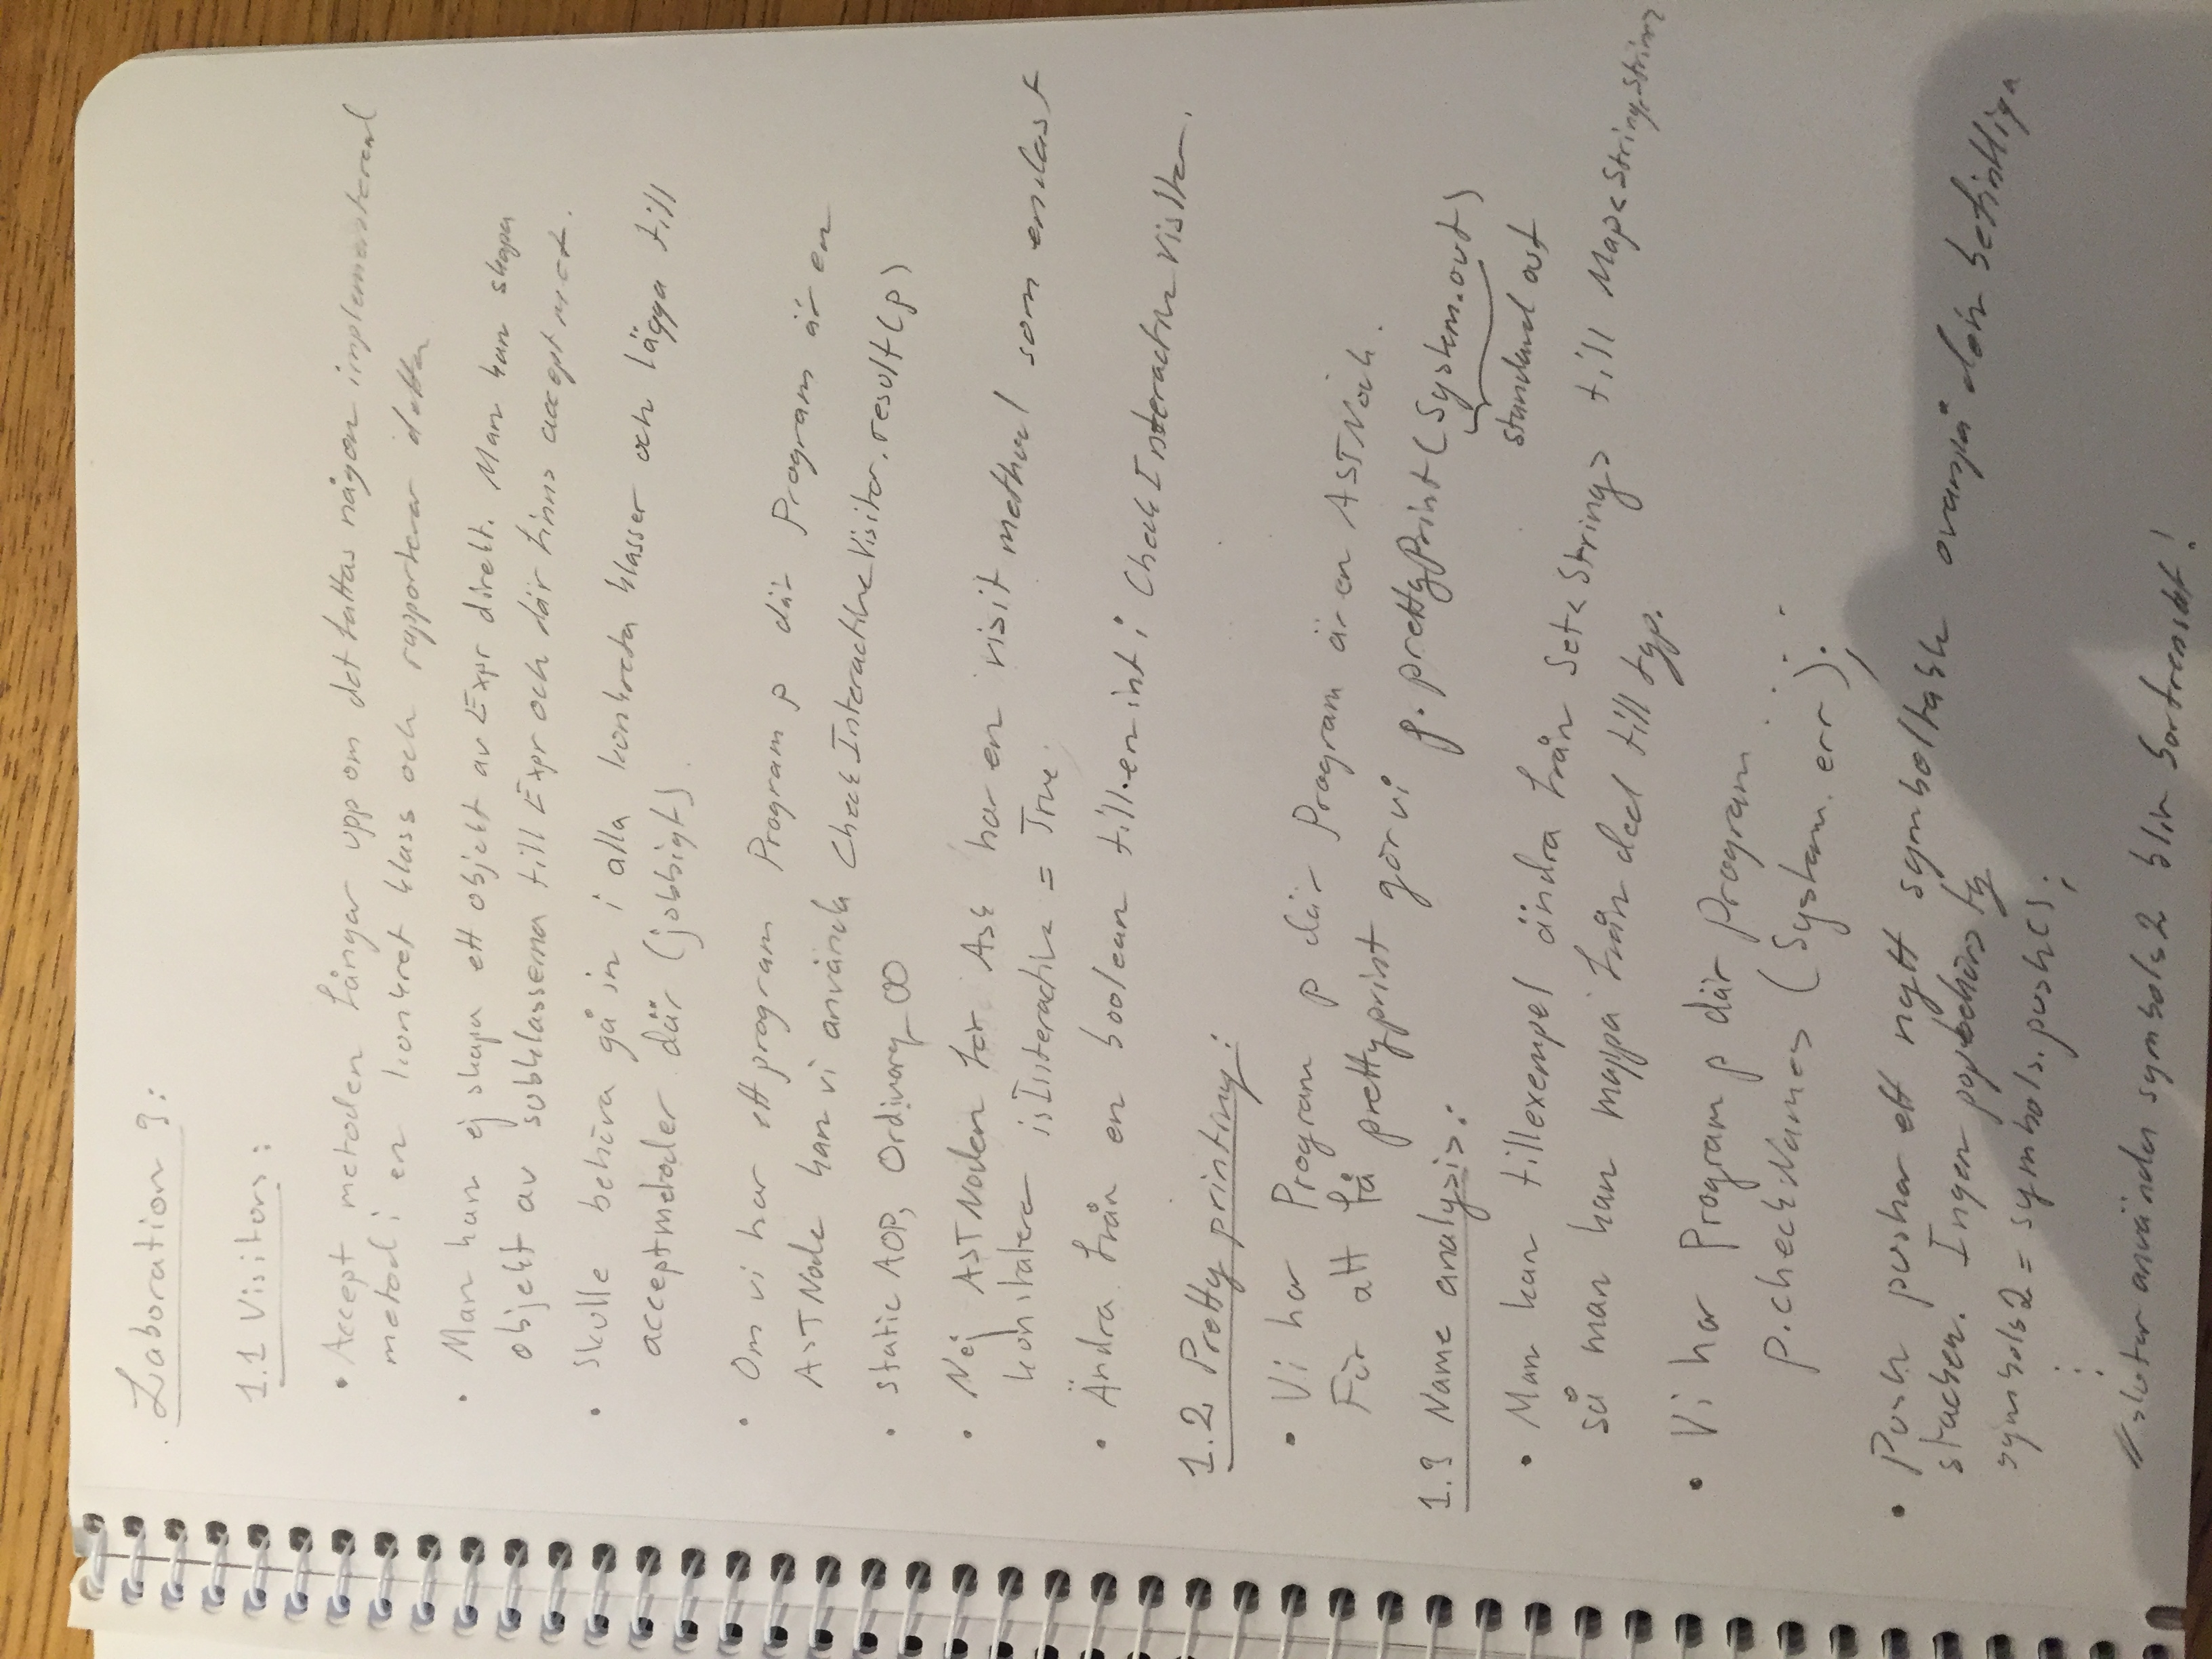 Laboration 3:
1.1 Visitors:
• Accept metoden fångar upp om det fattas någon implementerad
metod i en konkret klass och rapporterar detta
• Man kan ej skapa ett objekt av Expr direkt. Man kan skapa
objekt av subklasserna till Expr och där finns accept met.
• Skulle behöva gå in i alla konkreta klasser och lägga till
acceptmetoder där (jobbigt).
• Om vi har ett program Program p där Program är en
ASTNode kan vi använda CheckInteractiveVisitor.result(p)
• static AOP, Ordinary OO
• Nej ASTNoden för Ask har en visit method som endast
konstaterar isInteractive = True.
• Ändra från en boolean till en int i CheckInteractiveVisitor.
1.2 Pretty printing:
• Vi har Program p där Program är en ASTNode.
För att få prettyprint gör vi p.prettyPrint(System.out)
standard out
1.3 Name analysis:
• Man kan tillexempel ändra från Set<String> till Map<String,String>
så man kan mappa från decl till typ.
• Vi har Program p där Program ....
p.checkNames (System.err);
• Push pushar ett nytt symboltable ovanpå den befintliga
stacken. Ingen pop behövs ty
symbols2 = symbols.push();
⋮
// slutar använda symbols2 blir bortrensat!